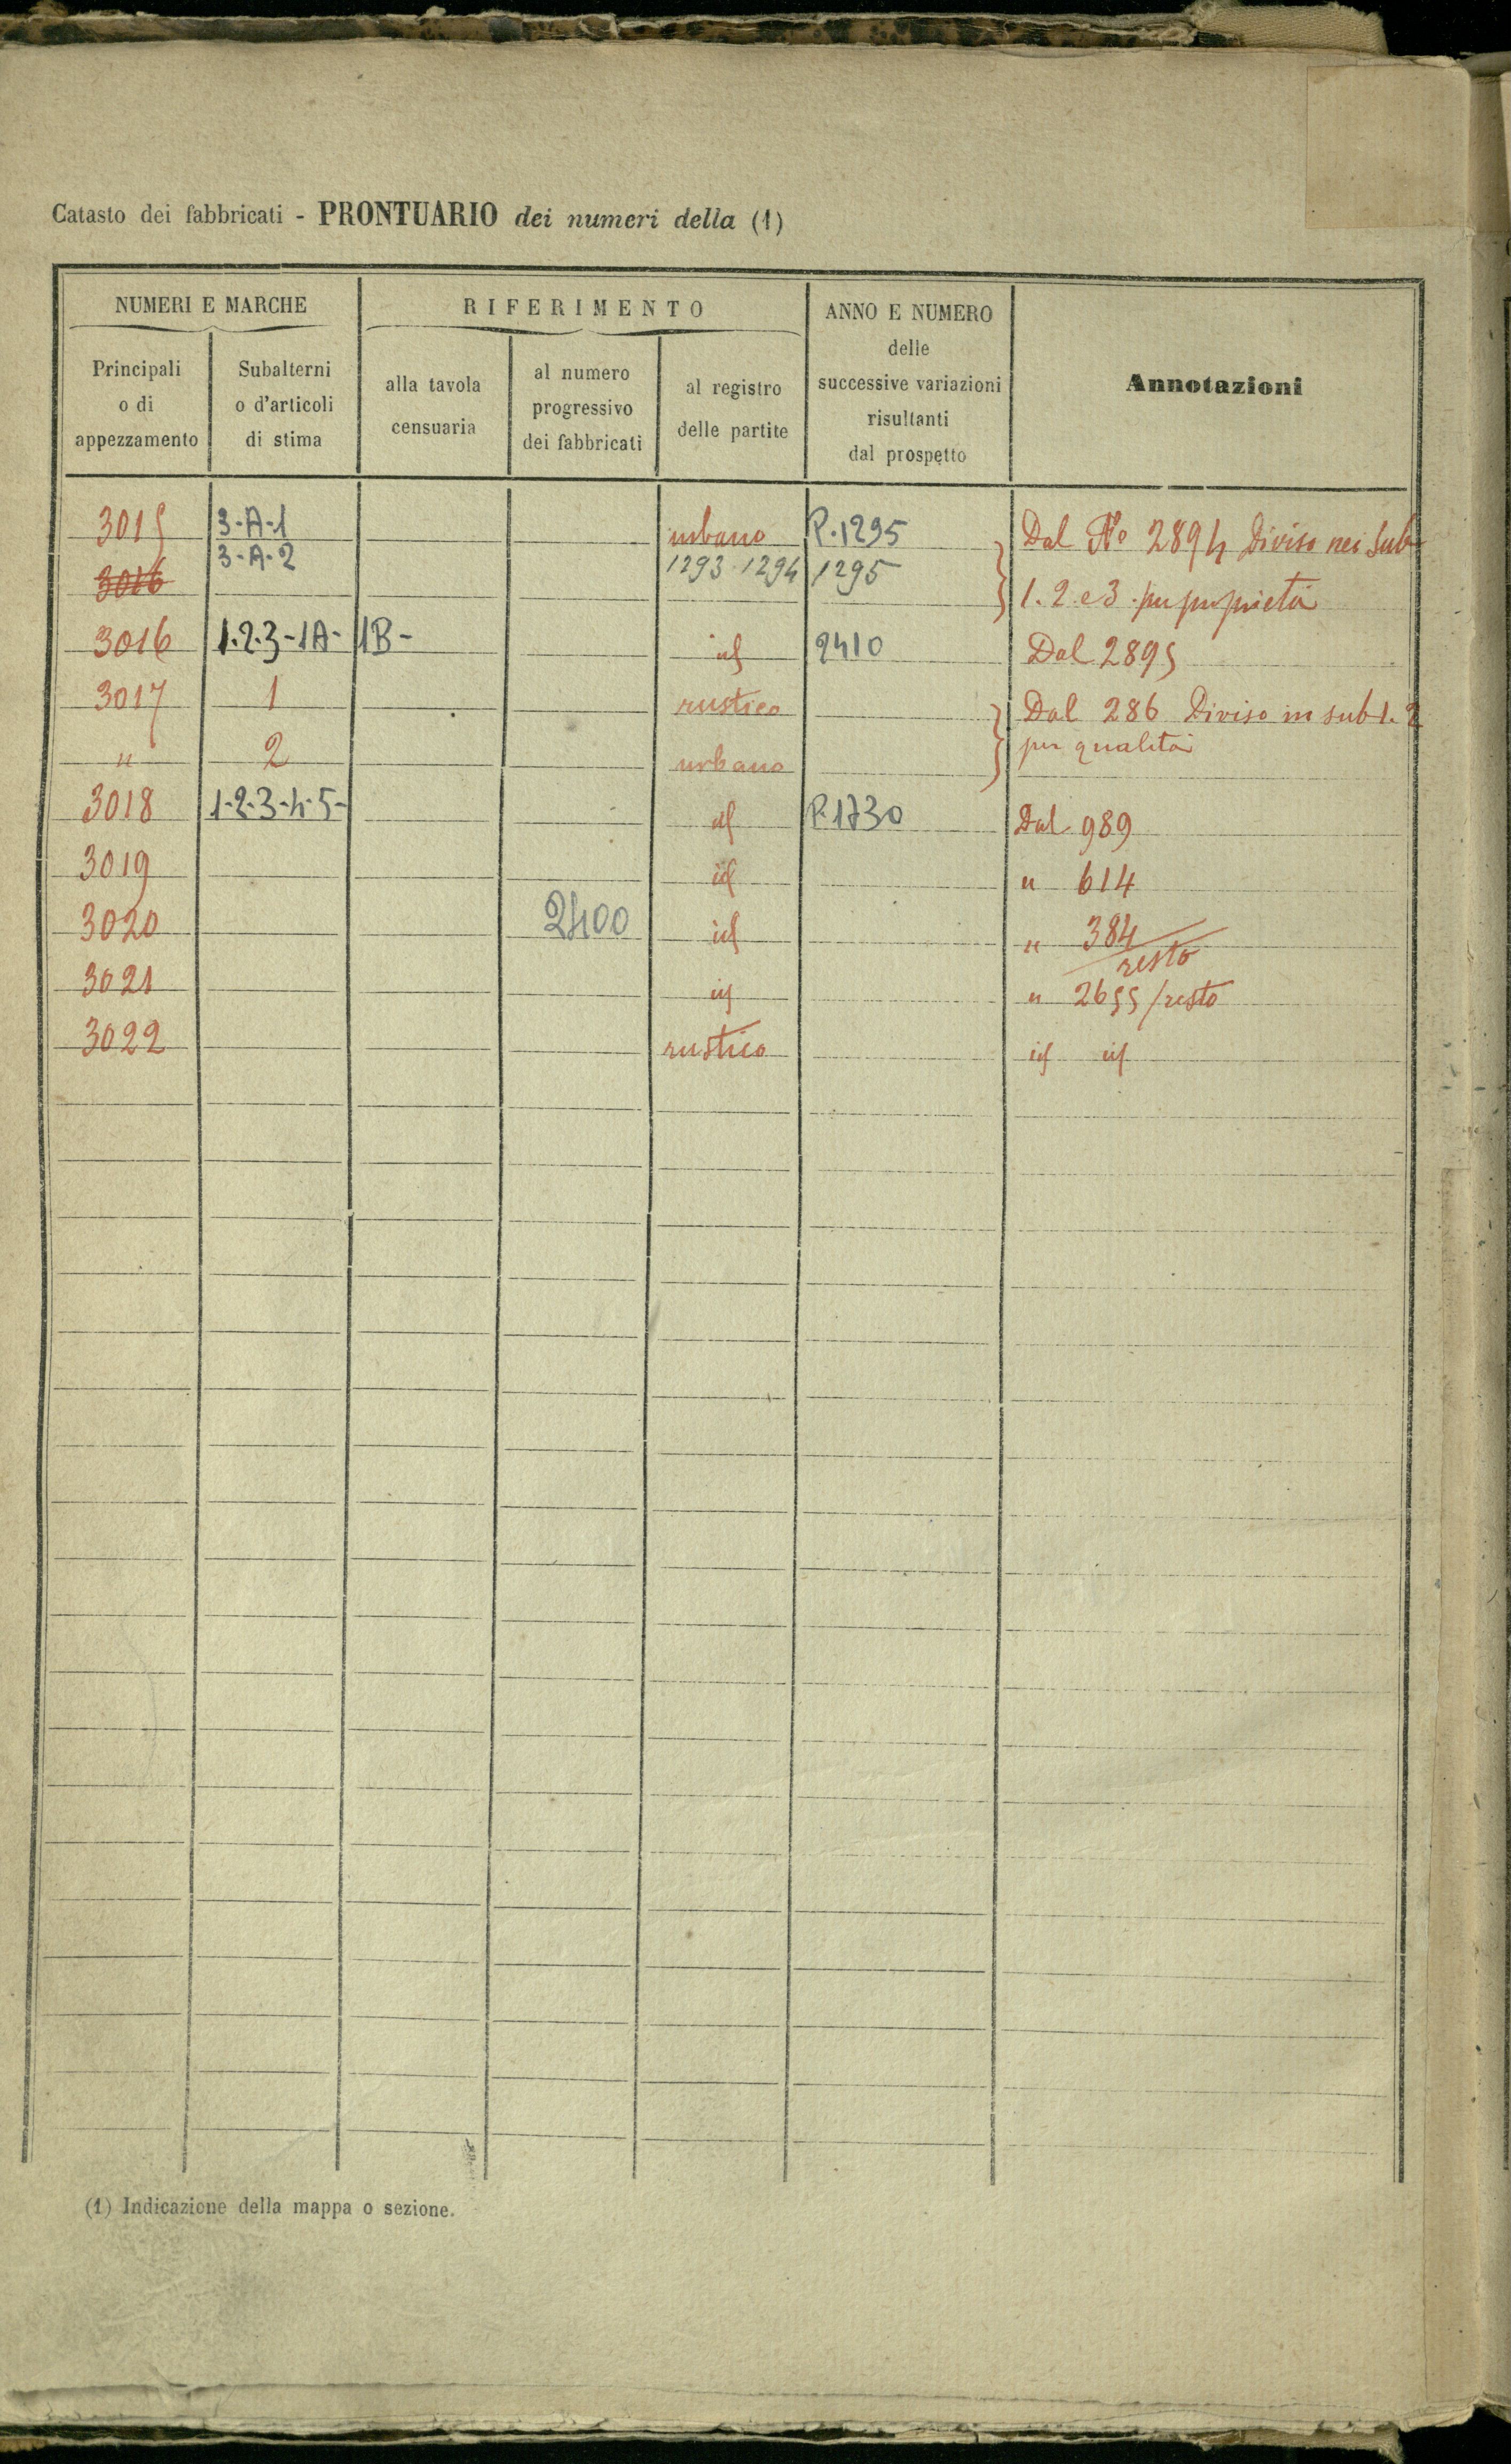 Catasto dei fabbricati - PRONTUARIO dei numeri della (1)
NUMERI E MARCHE
RIFERIMENTO
ANNO E NUMERO
delle
successive variazioni
risultanti
dal prospetto
Annotazioni
Principali
o di
appezzamento
Subalterni
o d'articoli
di stima
alla tavola
censuaria
al numero
progressivo
dei fabbricati
al registro
delle partite
3015 3-A-1 urbano P.1295 Dal No 2894 Diviso nei Sub
3-A-2 1293-1294 1295
3016 1.2.e3 per proprietà
3016 1.2.3-1A-1B- id 2410 Dal 2895
3017 1 rustico Dal 286 Diviso in sub 1.2
" 2 urbano per qualità
3018 1-2-3-4-5- id P.1730 Dal 989
3019 id " 614
3020 2400 id " 384
resto
3021 id " 2655/resto
3022 rustico id id
(1) Indicazione della mappa o sezione.